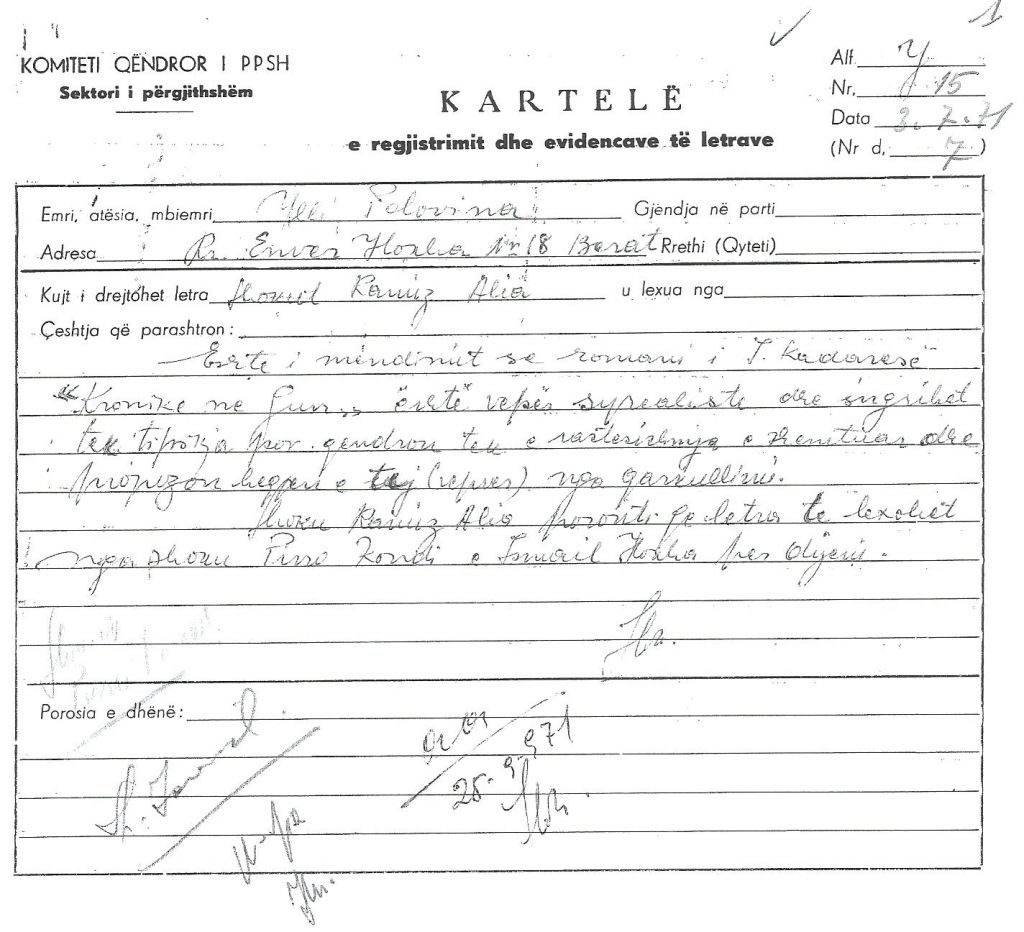 1
KOMITETI QËNDROR I PPSH
Sektori i përgjithshëm
KARTELË
e regjistrimit dhe evidencave të letrave
Alf. Y
Nr. 15
Data 3.7.71
(Nr d, 7)
Emri, atësia, mbiemri Ylli Polovina Gjendja në parti
Adresa Rr. Enver Hoxha Nr 18 Berat Rrethi (Qyteti)
Kujt i drejtohet letra shokut Ramiz Alia u lexua nga
Çeshtja që parashtron:
Është i mendimit se romani i I. Kadaresë
"Kronikë në Gur" është vepër syrealiste dhe ngrihet
tek por qendron tek e rastesishmja e dhe
propozon heqjen e tej (vepres) nga qarkullimi.
Shoku Ramiz Alia porositi qe letra te lexohet
nga shoku Piro Kondi e Ismail Hoxha per dijeni.
Porosia e dhënë:
25.9.971